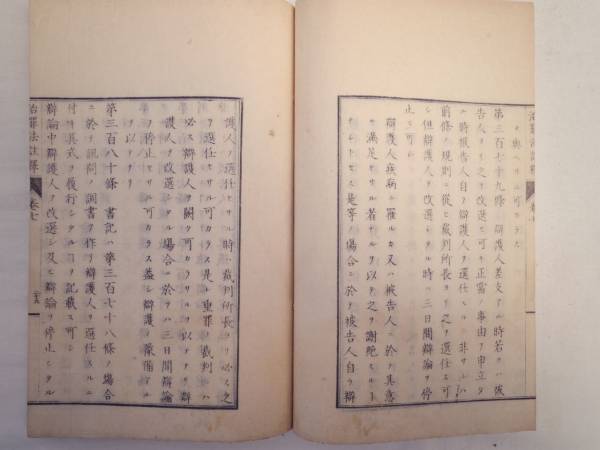 ヲ與ヘサル可カラス
第三百七十九條 辯護人差支アル時若クハ被
告人ヨリ之ヲ改選ス可キ正當ノ事由ヲ申立タ
ル時被告人自ラ辯護人ヲ選任セルニ非サレハ
前條ノ規則ニ從ヒ裁判所長ヨリ之ヲ選任ス可
シ但辯護人ヲ改選シタル時ハ三日間辯論ヲ停
止ス可シ
辯護人疾病ニ罹ルカ又ハ被告人ニ於テ其意
ニ滿足セサル若クハヲ以テ之ヲ謝絶スルー
アルトセンニ是等ノ場合ニ於テ被告人自ラ辯
治罪法註釋 卷七
護人ヲ選任セサル時ハ裁判所長ヨリ必ス之
ヲ選任セサル可カラス是レ重罪ノ裁判ニハ
必ス辯護人ヲ闕ク可カラサルヲ以テナリ辯
護人ヲ改選シタル場合ニ於テハ三日間辯論
ヲ停止セサル可カラス蓋シ辯護ノ豫備アル
ヲ以テナリ
第三百八十條 書記ハ第三百七十八條ノ場合
ニ於テ訊問ノ調書ヲ作リ辯護人ヲ選任スルニ
付キ其式ヲ履行シタルコヲ記載ス可シ
辯論中辯護人ヲ改選シ及ヒ辯論ヲ停止シタル
治罪法註釋 卷七 二十五